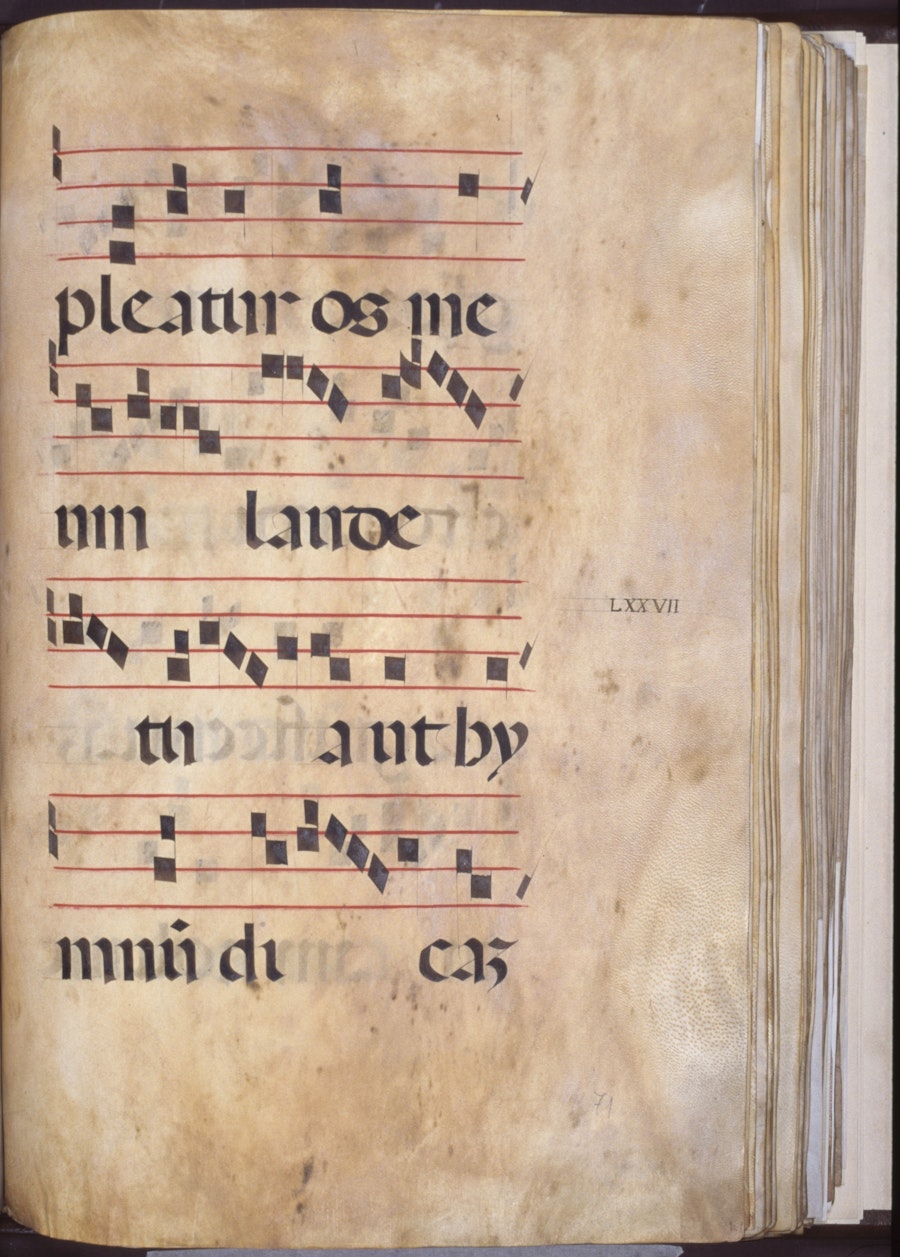 pleatur os me
um laude
LXXVII
tu aut hy
mnū di caʒ
71